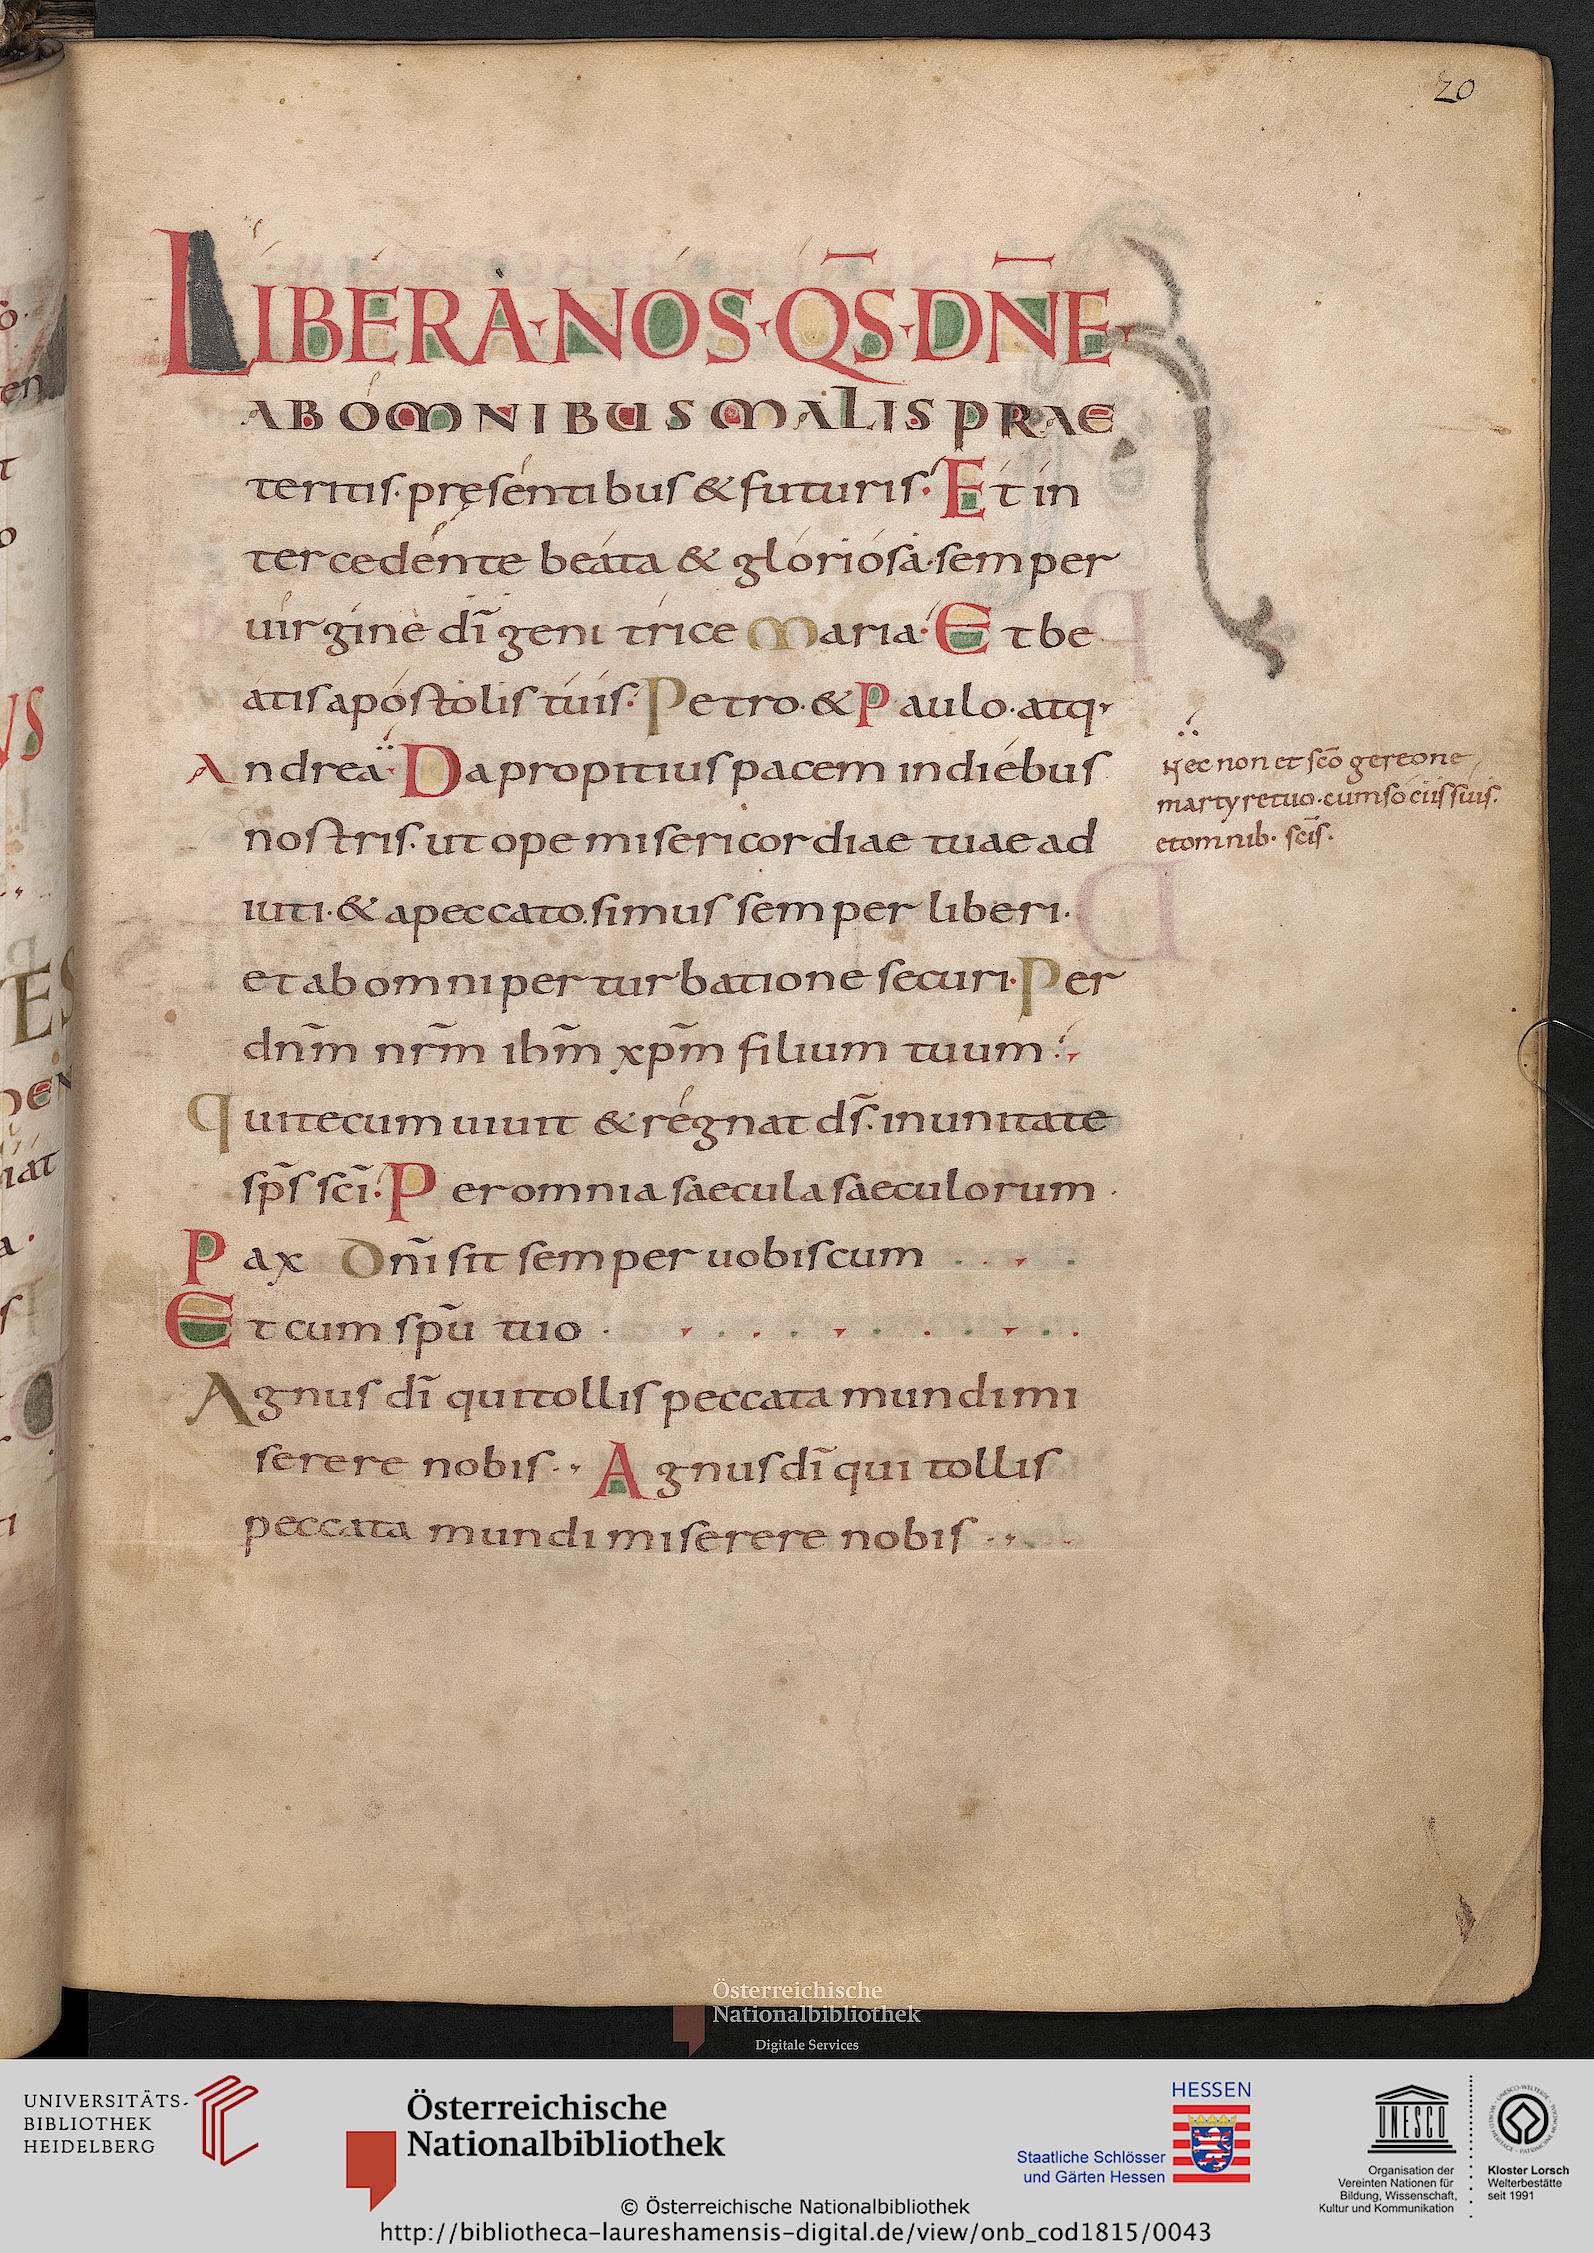 20
LIBERA·NOS·QS̄·DN̄E·
AB OMNIBUS MALIS PRAE
teritis·presentibus & futuris· Et in
tercedente beata & gloriosa·semper
uirgine dī geni trice Maria· Et be
atis apostolis tuis· Petro·& Paulo·atq·
Andrea· Da propitius pacem in diebus
nostris·ut ope misericordiae tuae ad
iuti·& a peccato simus semper liberi·
et ab omni perturbatione securi· Per
dn̄m nr̄m ihm̄ xpm̄ filium tuum·
Qui tecum uiuit & regnat ds̄·in unitate
sps̄ scī· Per omnia saecula saeculorum·
Pax Dn̄i sit semper uobiscum
Et cum spū tuo·
Agnus dī qui tollis peccata mundi mi
serere nobis· Agnus dī qui tollis
peccata mundi miserere nobis·
Nec non et scō gereone
martyre tuo·cum sociis suis·
et omnib· scīs·
Österreichische
Nationalbibliothek
Digitale Services
UNIVERSITÄTS-
BIBLIOTHEK
HEIDELBERG
Österreichische
Nationalbibliothek
HESSEN
Staatliche Schlösser
und Gärten Hessen
UNESCO
Organisation der
Vereinten Nationen für
Bildung, Wissenschaft,
Kultur und Kommunikation
Kloster Lorsch
Welterbestätte
seit 1991
© Österreichische Nationalbibliothek
http://bibliotheca-laureshamensis-digital.de/view/onb_cod1815/0043